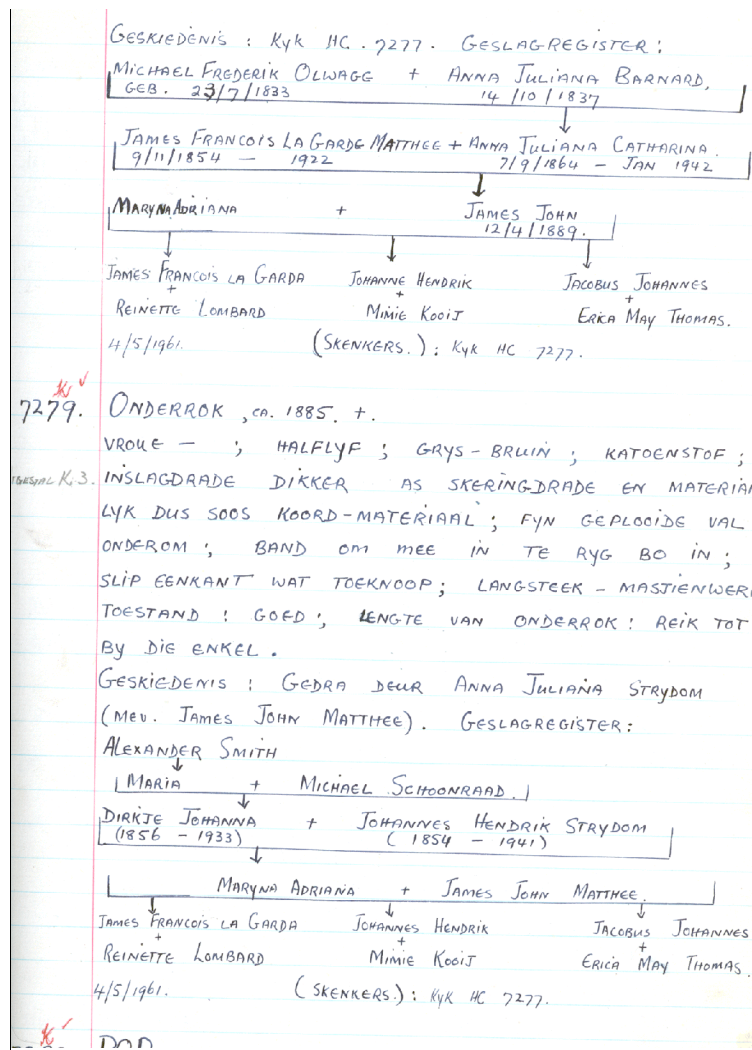 GESKIEDENIS : KYK HC . 7277 . GESLAGREGISTER :
MICHAEL FREDERIK OLWAGE + ANNA JULIANA BARNARD,
GEB. 23/7/1833 14/10/1837
JAMES FRANCOIS LA GARDE MATTHEE + ANNA JULIANA CATHARINA.
9/11/1854 — 1922 7/9/1864 — JAN 1942
MARYNA ADRIANA + JAMES JOHN
12/4/1889.
JAMES FRANCOIS LA GARDA JOHANNE HENDRIK JACOBUS JOHANNES
+ + +
REINETTE LOMBARD MIMIE KOOIJ ERICA MAY THOMAS.
4/5/1961. (SKENKERS.) : KYK HC 7277.
K ✓
7279. ONDERROK , CA. 1885. +.
VROUE — ; HALFLYF ; GRYS - BRUIN ; KATOENSTOF ;
K.3. INSLAGDRADE DIKKER AS SKERINGDRADE EN MATERIA
LYK DUS SOOS KOORD-MATERIAAL ; FYN GEPLOOIDE VAL
ONDEROM ; BAND OM MEE IN TE RYG BO IN ;
SLIP EENKANT WAT TOEKNOOP ; LANGSTEEK - MASJIENWER
TOESTAND : GOED ; LENGTE VAN ONDERROK : REIK TOT
BY DIE ENKEL .
GESKIEDENIS : GEDRA DEUR ANNA JULIANA STRYDOM
(MEV. JAMES JOHN MATTHEE) . GESLAGREGISTER :
ALEXANDER SMITH
MARIA + MICHAEL SCHOONRAAD.
DIRKJE JOHANNA + JOHANNES HENDRIK STRYDOM
(1856 - 1933) (1854 - 1941)
MARYNA ADRIANA + JAMES JOHN MATTHEE.
JAMES FRANCOIS LA GARDA JOHANNES HENDRIK JACOBUS JOHANNES
+ + +
REINETTE LOMBARD MIMIE KOOIJ ERICA MAY THOMAS.
4/5/1961. (SKENKERS.) : KYK HC 7277.
K ✓